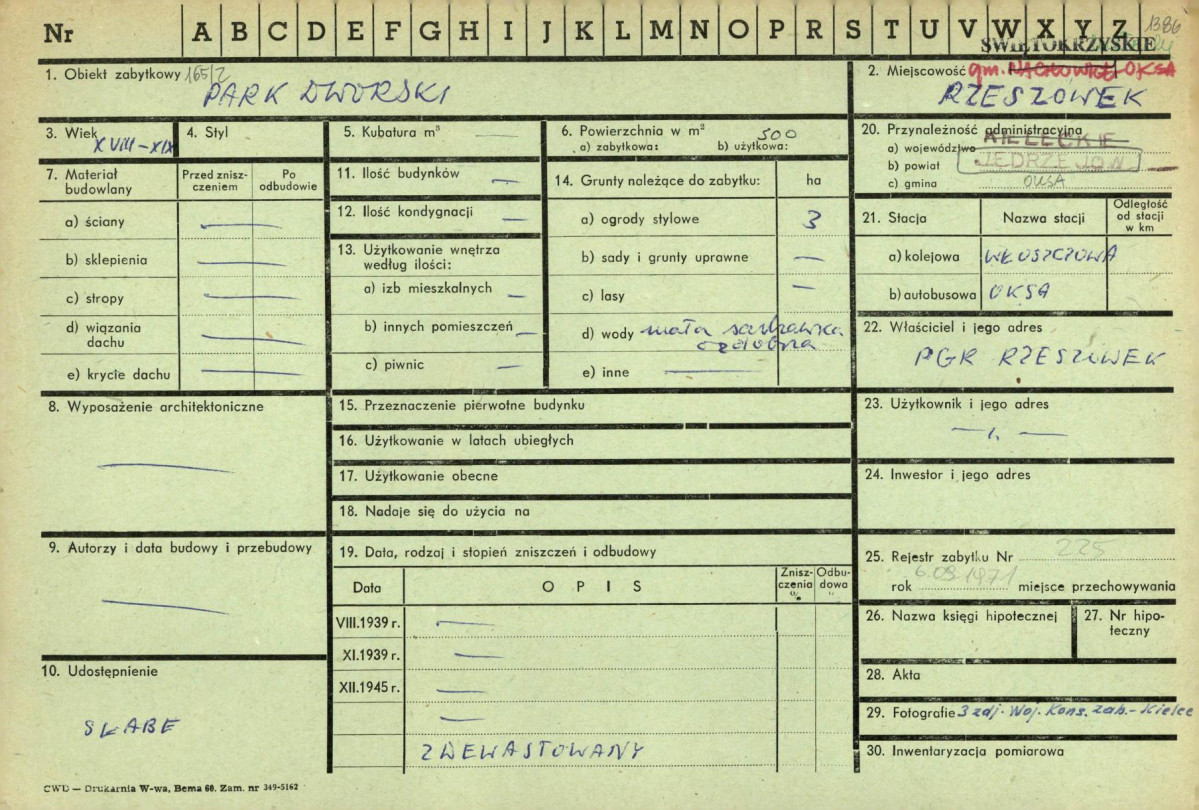 Nr A B C D E F G H I J K L M N O P R S T U V W X Y Z 1386
ŚWIĘTOKRZYSKIE
1. Obiekt zabytkowy 165/2
PARK DWORSKI
2. Miejscowość gm. NAGŁOWICE OKSA
RZESZÓWEK
3. Wiek
XVIII-XIX
4. Styl
5. Kubatura m³ —
6. Powierzchnia w m² 500
a) zabytkowa: b) użytkowa:
7. Materiał budowlany
Przed znisz-
czeniem
Po
odbudowie
a) ściany —
b) sklepienia —
c) stropy —
d) wiązania
dachu —
e) krycie dachu —
8. Wyposażenie architektoniczne
—
9. Autorzy i data budowy i przebudowy
—
10. Udostępnienie
SŁABE
11. Ilość budynków —
12. Ilość kondygnacji —
13. Użytkowanie wnętrza
według ilości:
a) izb mieszkalnych —
b) innych pomieszczeń —
c) piwnic —
14. Grunty należące do zabytku: ha
a) ogrody stylowe 3
b) sady i grunty uprawne —
c) lasy —
d) wody mała sadzawka
ozdobna
e) inne —
15. Przeznaczenie pierwotne budynku
16. Użytkowanie w latach ubiegłych
17. Użytkowanie obecne
18. Nadaje się do użycia na
19. Data, rodzaj i stopień zniszczeń i odbudowy
Data
O P I S
Znisz-
czenia
%
Odbu-
dowa
%
VIII.1939 r. —
XI.1939 r. —
XII.1945 r. —
—
ZDEWASTOWANY
20. Przynależność administracyjna
a) województwo KIELECKIE
b) powiat JĘDRZEJÓW
c) gmina OKSA
21. Stacja
Nazwa stacji
Odległość
od stacji
w km
a) kolejowa WŁOSZCZOWA
b) autobusowa OKSA
22. Właściciel i jego adres
PGR RZESZÓWEK
23. Użytkownik i jego adres
— ı. —
24. Inwestor i jego adres
25. Rejestr zabytku Nr 225
rok 6.09.1971 miejsce przechowywania
26. Nazwa księgi hipotecznej
27. Nr hipo-
teczny
28. Akta
29. Fotografie 3 zdj. Woj. Kons. zab. - Kielce
30. Inwentaryzacja pomiarowa
CWD — Drukarnia W-wa, Bema 60. Zam. nr 349-5162